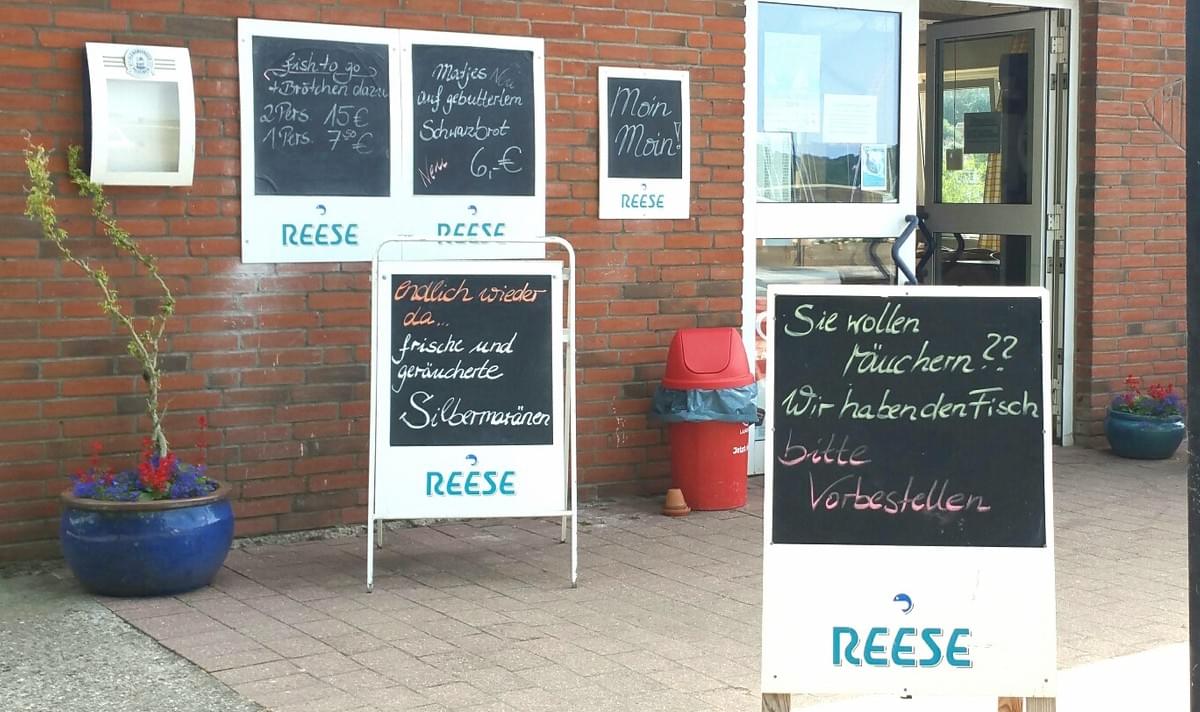 fish to go
+ Brötchen dazu
2 Pers. 15 €
1 Pers. 7,50 €
REESE
Matjes
auf gebuttertem
Schwarzbrot
Neu 6,-€
REESE
Moin
Moin!
REESE
endlich wieder
da...
frische und
geräucherte
Silbermaränen
REESE
Sie wollen
räuchern??
Wir haben den Fisch
bitte
Vorbestellen
REESE